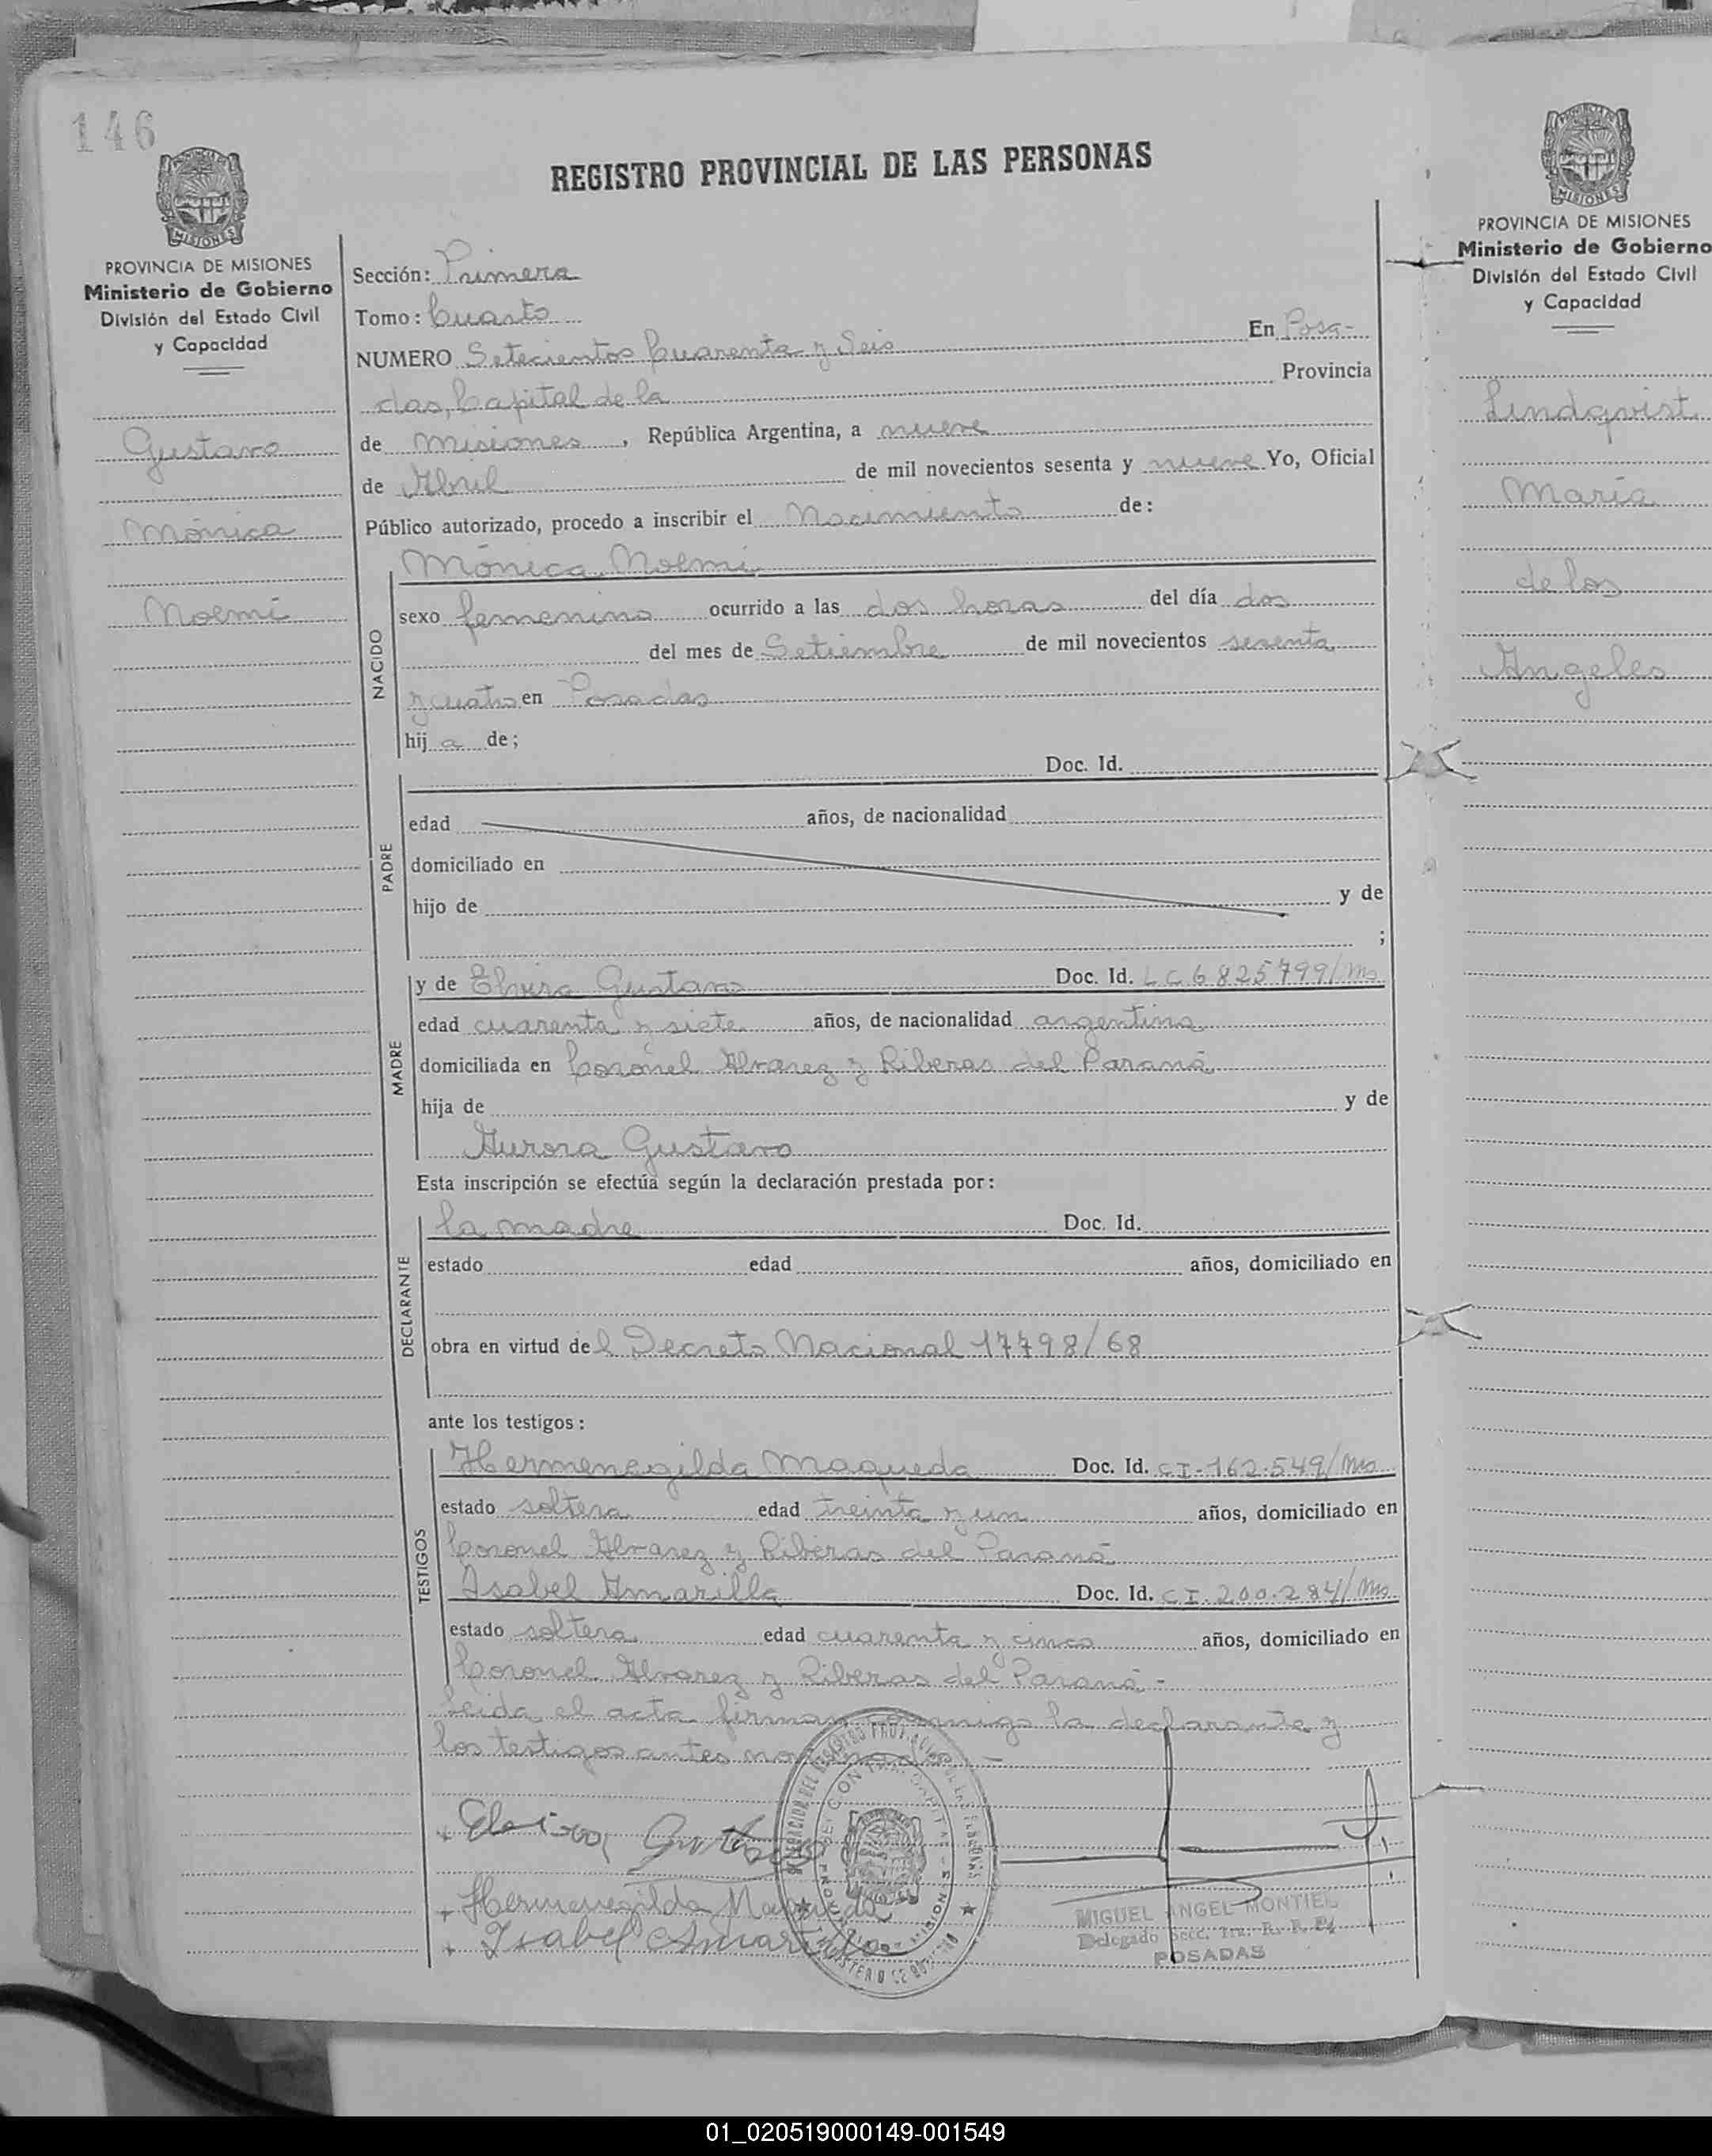 146
REGISTRO PROVINCIAL DE LAS PERSONAS
PROVINCIA DE MISIONES
Ministerio de Gobierno
División del Estado Civil
y Capacidad
Gustavo
Mónica
Noemí
Sección: Primera
Tomo: Cuarto
NUMERO Setecientos Cuarenta y Seis En Posa-
das, Capital de la Provincia
de Misiones, República Argentina, a nueve
de Abril de mil novecientos sesenta y nueve Yo, Oficial
Público autorizado, procedo a inscribir el Nacimiento de:
NACIDO
Mónica Noemí
sexo femenino ocurrido a las dos horas del día dos
del mes de Setiembre de mil novecientos sesenta
y cuatro en Posadas
hija de;
PADRE
Doc. Id.
edad años, de nacionalidad
domiciliado en
hijo de y de
;
MADRE
y de Elvira Gustavo Doc. Id. LC 6825799/Ms
edad cuarenta y siete años, de nacionalidad argentina
domiciliada en Coronel Alvarez y Riberas del Paraná
hija de y de
Aurora Gustavo
Esta inscripción se efectúa según la declaración prestada por:
DECLARANTE
la madre Doc. Id.
estado edad años, domiciliado en
obra en virtud del Decreto Nacional 17798/68
ante los testigos:
TESTIGOS
Hermenegilda Maqueda Doc. Id. CI-162.549/Ms
estado soltera edad treinta y un años, domiciliado en
Coronel Alvarez y Riberas del Paraná
Isabel Amarilla Doc. Id. CI.200.284/Ms
estado soltera edad cuarenta y cinco años, domiciliado en
Coronel Alvarez y Riberas del Paraná-
Leida el acta firman conmigo la declarante y
los testigos antes nominados
+ Elvira Gustavo
+ Hermenegilda Maqueda
+ Isabel Amarilla
MIGUEL ANGEL MONTIEL
Delegado Secc.
POSADAS
PROVINCIA DE MISIONES
Ministerio de Gobierno
División del Estado Civil
y Capacidad
Lindqvist
María
de los
Angeles
01_020519000149-001549